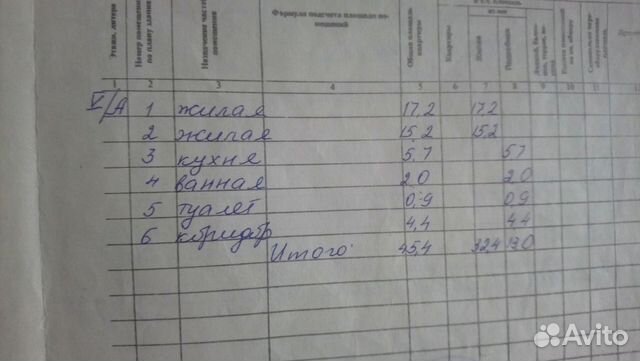 в т.ч. площадь
из нее
Этаж, литера
Номер помещения по плану здания
Назначение частей помещения
Формула подсчета площади помещений
Общая площадь квартиры
Квартиры
Жилая
Подсобная
1 2 3 4 5 6 7 8 9 10 11
V/А 1 жилая 17,2 17,2
2 жилая 15,2 15,2
3 кухня 5,7 5,7
4 ванная 2,0 2,0
5 туалет 0,9 0,9
6 коридор 4,4 4,4
Итого: 45,4 32,4 13,0
Avito